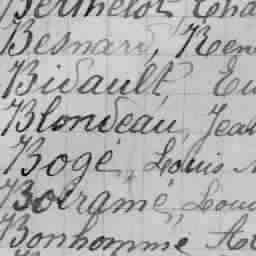 Berthelot Cha
Besnard, Ren
Bidault Eu
Blondeau, Jea
Bogé, Louis
Bonhomme